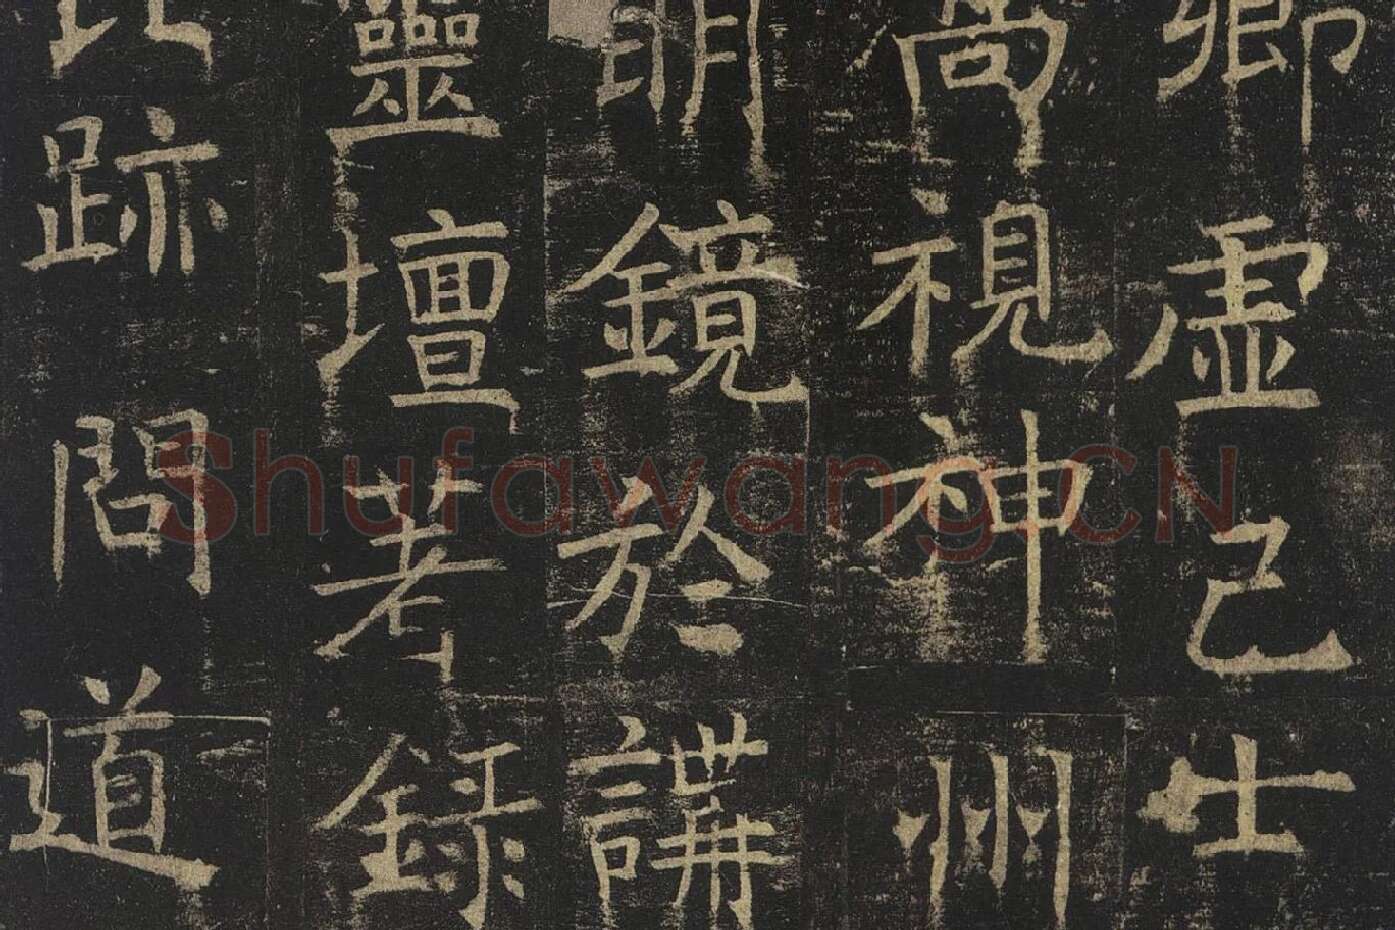 卿虛己士
高視神州
明鏡於講
靈壇考録
比跡問道
Shufawang.CN